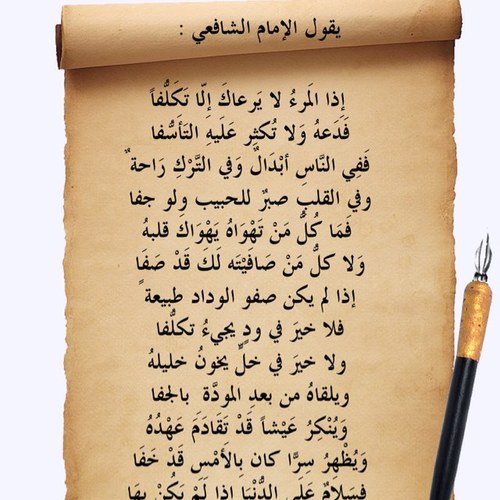 يقول الإمام الشافعي :
إذا المَرءُ لا يَرعاكَ إلّا تَكَلُّفاً
فَدَعهُ وَلا تُكثِر عَلَيهِ التَأَسُّفا
فَفِي النَّاسِ أبْدَالٌ وَفي التَّرْكِ رَاحة ٌ
وفي القلبِ صبرٌ للحبيب ولو جفا
فَمَا كُلُّ مَنْ تَهْوَاهُ يَهْوَاكَ قلبهُ
وَلا كلُّ مَنْ صَافَيْتَه لَكَ قَدْ صَفَا
إذا لم يكن صفو الوداد طبيعة ً
فلا خيرَ في ودٍ يجيءُ تكلُّفا
ولا خيرَ في خلٍّ يخونُ خليلهُ
ويلقاهُ من بعدِ المودَّة ِ بالجفا
وَيُنْكِرُ عَيْشاً قَدْ تَقَادَمَ عَهْدُهُ
وَيُظْهِرُ سِرًّا كان بِالأَمْسِ قَدْ خَفَا
سَلامٌ عَلَى الدُّنْيَا إذا لَمْ يَكُنْ بِهَا